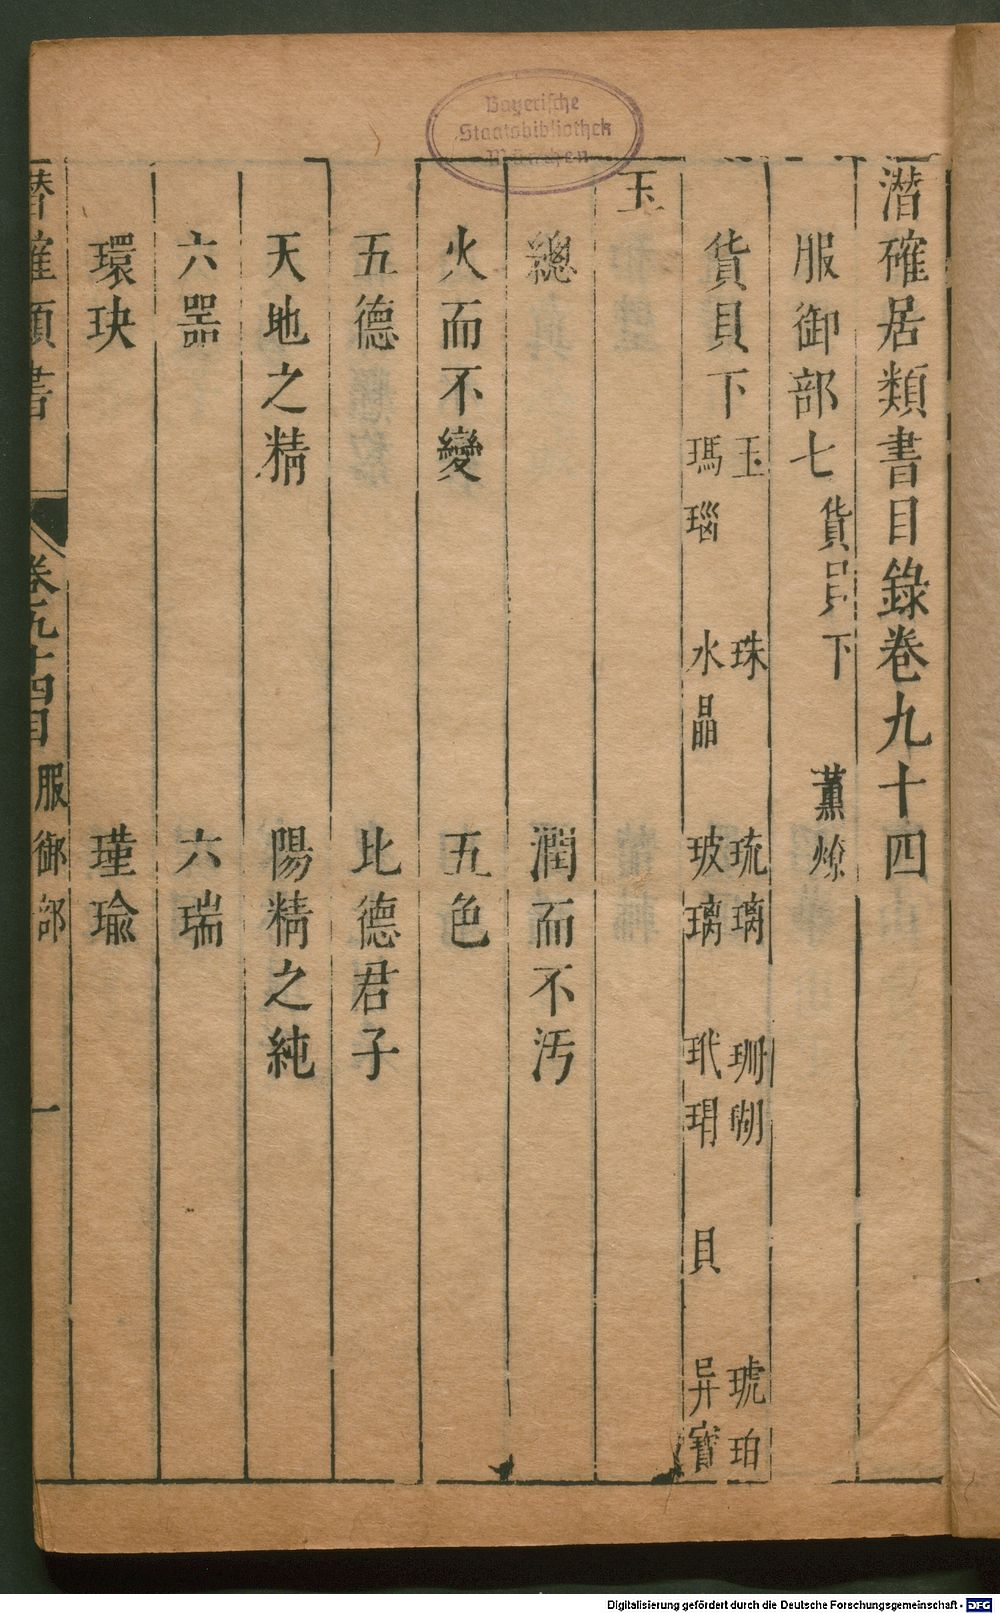 Bayerische
Staatsbibliothek
München
潛確居類書目錄卷九十四
服御部七 貨貝下 薰燎
貨貝下 玉 珠 琉璃 珊瑚 琥珀
瑪瑙 水晶 玻璃 玳瑁 貝 异寶
玉
總 潤而不汚
火而不變 五色
五德 比德君子
天地之精 陽精之純
六器 六瑞
環玦 瑾瑜
潛確類書 卷九十四目 服御部 一
Digitalisierung gefördert durch die Deutsche Forschungsgemeinschaft - DFG